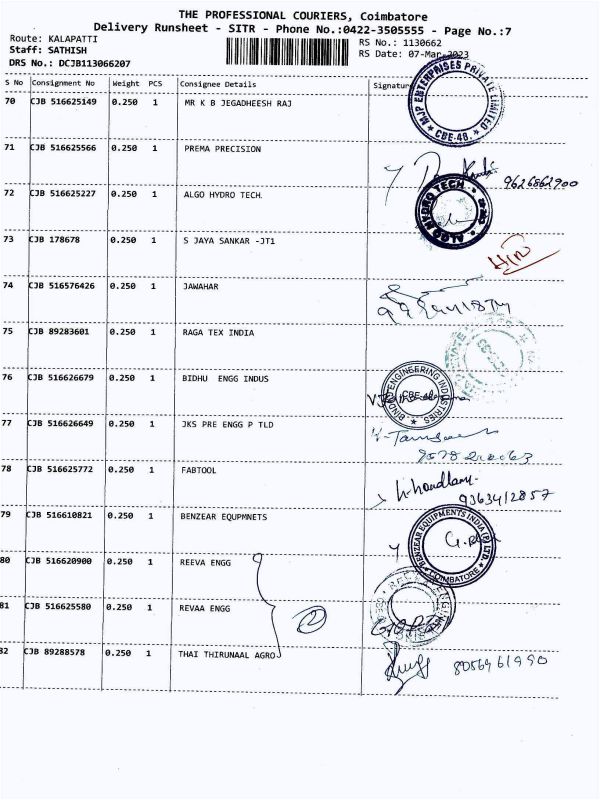 THE PROFESSIONAL COURIERS, Coimbatore
Delivery Runsheet - SITR - Phone No.:0422-3505555 - Page No.:7
Route: KALAPATTI
Staff: SATHISH
DRS No.: DCJB113066207
RS No.: 1130662
RS Date: 07-Mar-2023
S No Consignment No Weight PCS Consignee Details Signature
70 CJB 516625149 0.250 1 MR K B JEGADHEESH RAJ
MJP ENTERPRISES PRIVATE LIMITED * CBE-48. *
71 CJB 516625566 0.250 1 PREMA PRECISION
9626862900
72 CJB 516625227 0.250 1 ALGO HYDRO TECH.
ALGO HYDRO TECH
73 CJB 178678 0.250 1 S JAYA SANKAR -JT1
74 CJB 516576426 0.250 1 JAWAHAR
75 CJB 89283601 0.250 1 RAGA TEX INDIA
76 CJB 516626679 0.250 1 BIDHU ENGG INDUS
ENGINEERING INDUSTRIES
77 CJB 516626649 0.250 1 JKS PRE ENGG P TLD
78 CJB 516625772 0.250 1 FABTOOL
9363412857
79 CJB 516610821 0.250 1 BENZEAR EQUPMNETS
BENZEAR EQUIPMENTS INDIA (P) LTD. * COIMBATORE *
80 CJB 516620900 0.250 1 REEVA ENGG
81 CJB 516625580 0.250 1 REVAA ENGG
2
82 CJB 89288578 0.250 1 THAI THIRUNAAL AGRO
8056961990